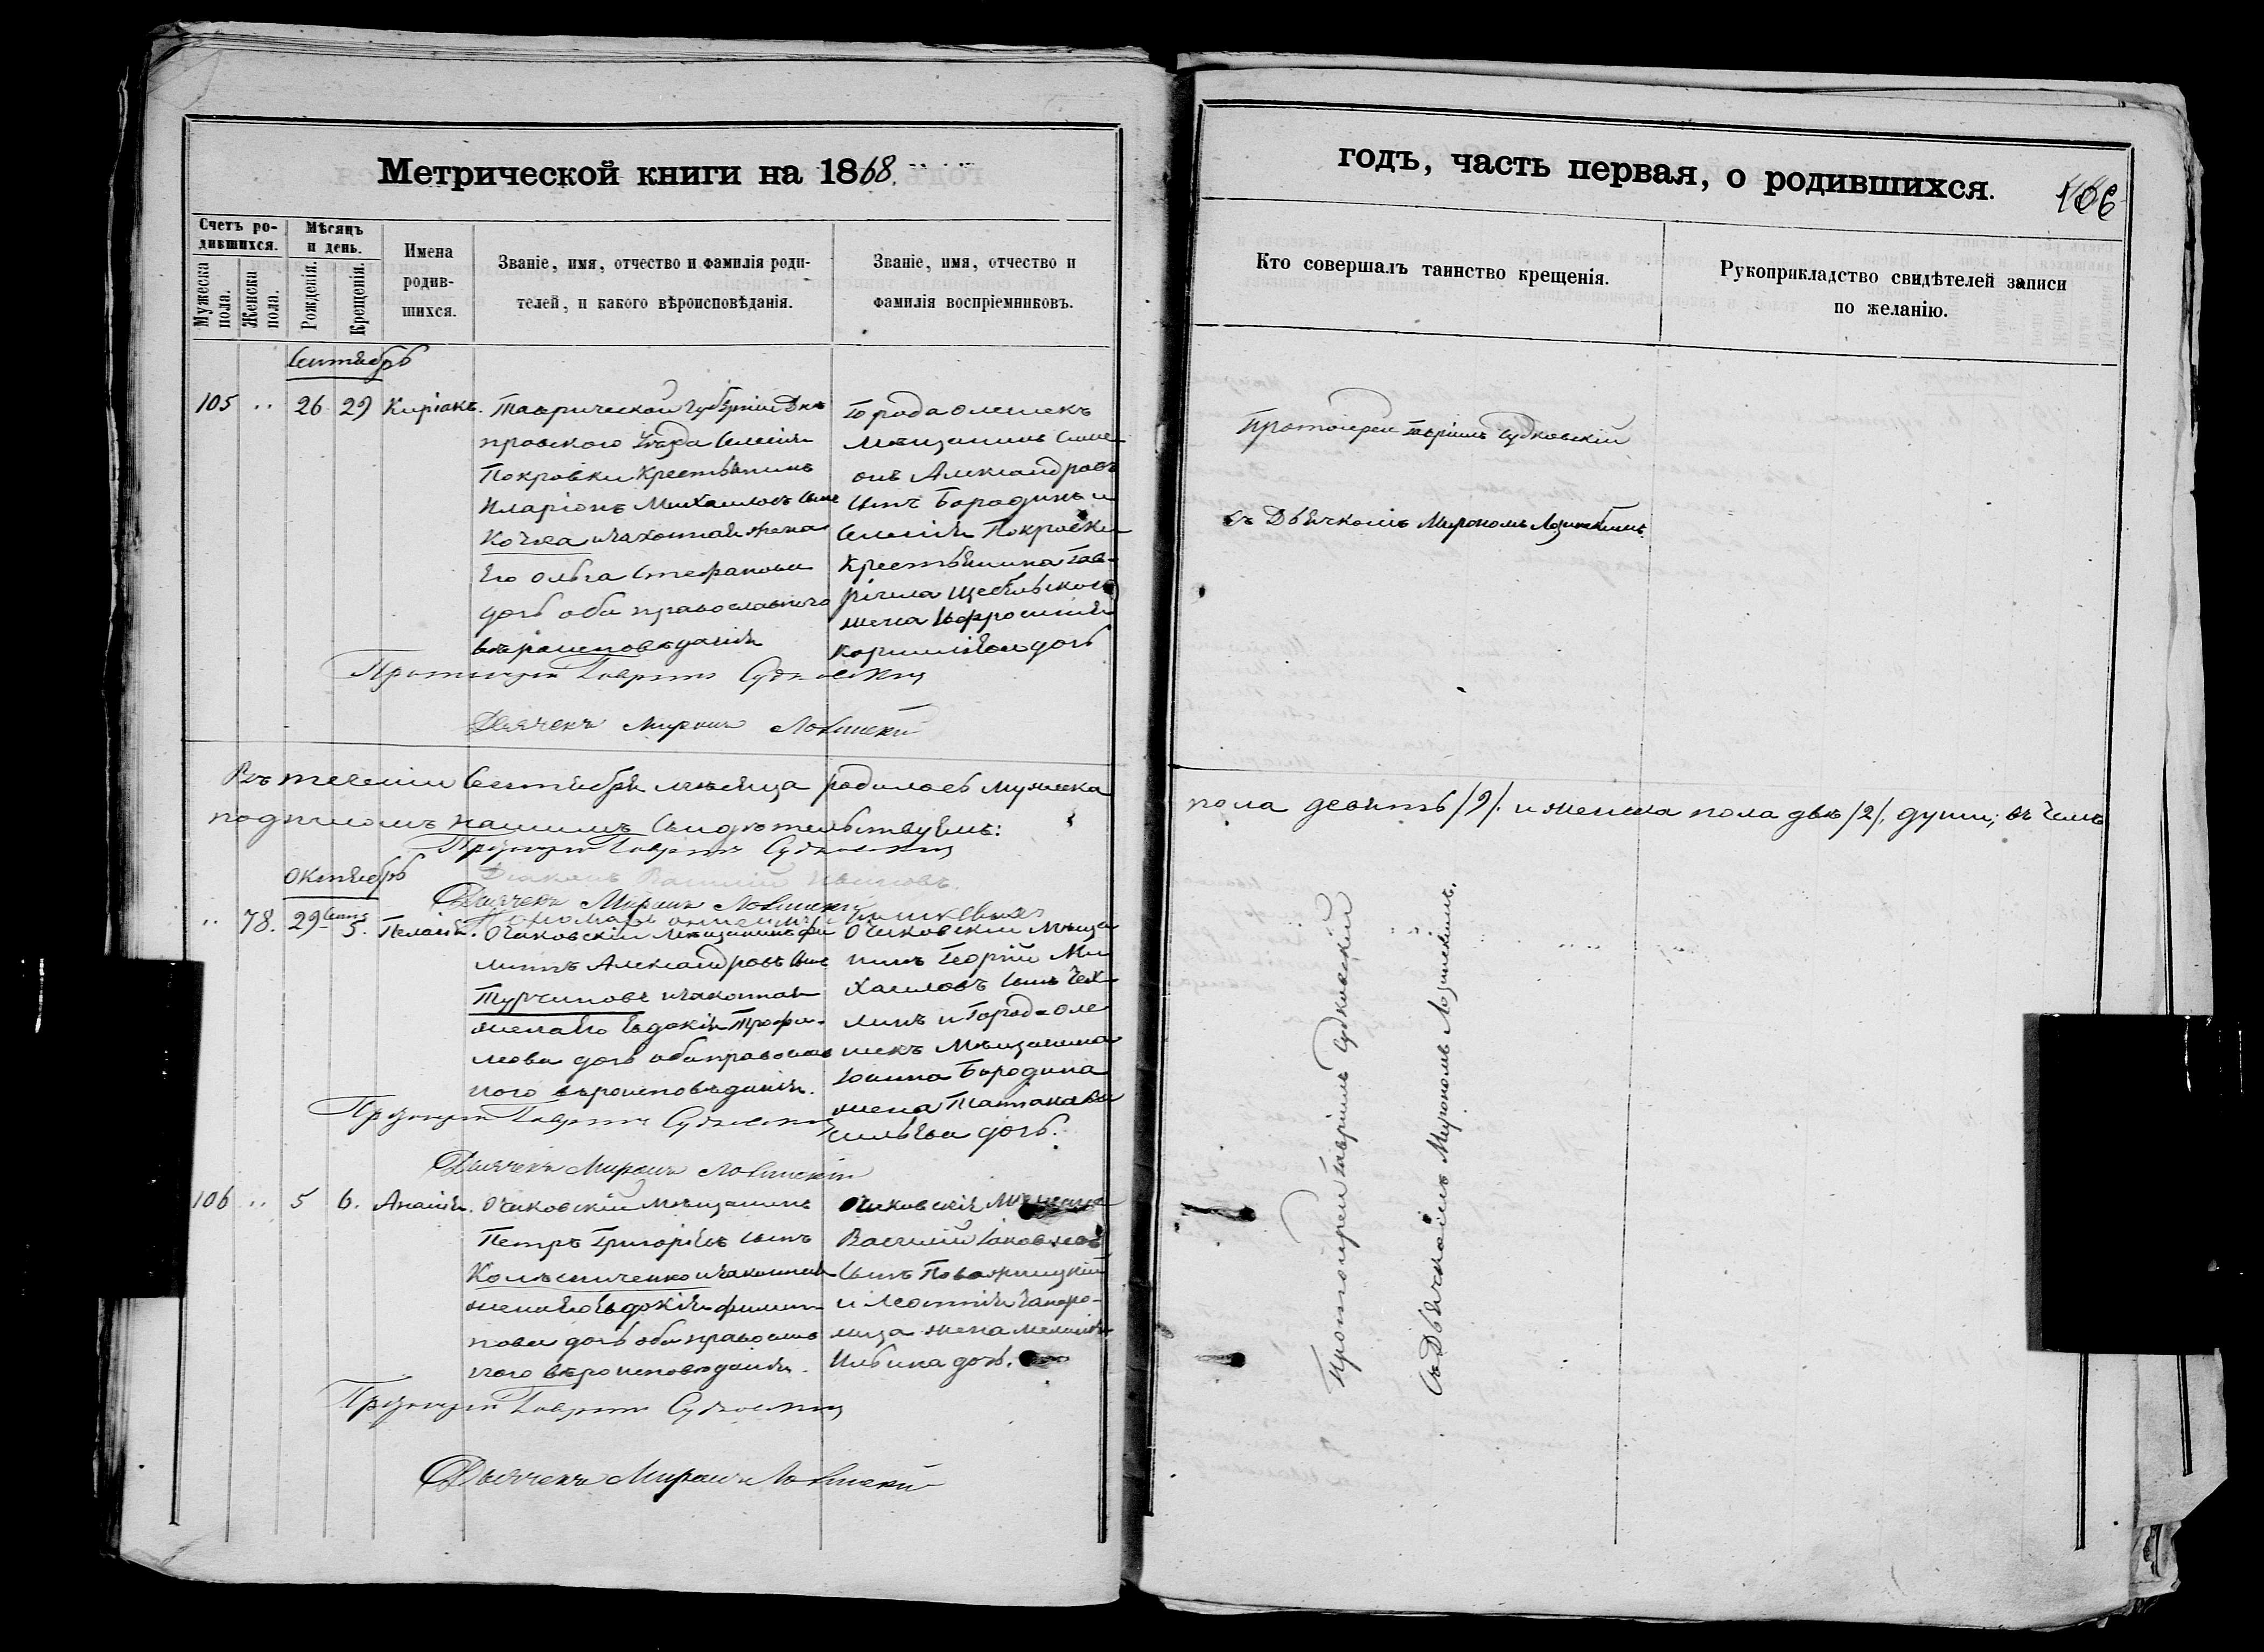 Метрической книги на 1868.
годъ, часть первая, о родившихся.
106
Счетъ ро-
дившихся.
Мужеска
пола.
Женска
пола.
Мѣсяцъ
и день.
Рожденія.
Крещенія.
Имена
родив-
шихся.
Званіе, имя, отчество и фамилія роди-
телей, и какого вѣроисповѣданія.
Званіе, имя, отчество и
фамилія воспріемниковъ.
Кто совершалъ таинство крещенія.
Рукоприкладство свидѣтелей записи
по желанію.
Сентябрь
105 .. 26 29 Киріакъ.
Таврической Губерніи Днѣ
провского Уѣзда Селенія
Покровки Крестьянинъ
Иларіонъ Михаиловъ Сынъ
Кочка и законная жена
Его Ольга Стефанова
дочь оба православного
вѣроисповѣданія
Города Олешекъ
Мѣщанинъ Симе
онъ Александровъ
Сынъ Бородинъ и
Селенія Покровки
Крестьянина Гав-
ріила
жена Ефросинія
Корниліева дочь
Протоіерей Гавріилъ Судковскій
съ Дьячкомъ Мирономъ Лозинскимъ
Протоіерей Гавріилъ Судковскій
Дьячекъ Миронъ Лозинскій
Въ теченіи Сентября мѣсяца родилось мужеска
пола девять /9/. и женска пола двѣ /2/. души; въ чемъ
подписомъ нашимъ Свидѣтельствуемъ:
Протоіерей Гавріилъ Судковскій
Діаконъ Василій Ивановъ.
Дьячекъ Миронъ Лозинскій
Пономарь
Октябрь
.. 78. 29 Сент 5. Пелагія.
Очаковскій Мѣщанинъ Фи
липъ Александровъ Сынъ
Турчиновъ и законная
жена Его Евдокія Трофи-
мова дочь оба православ
ного вѣроисповѣданія.
Очаковскій Мѣща
нинъ Георгій Ми
хаиловъ Сынъ Чех
линъ и Города Оле
шекъ Мѣщанина
Іоанна Бородина
жена Татіана Ва
сильева дочь.
Протоіерей Гавріилъ Судковскій
Дьячекъ Миронъ Лозинскій
106 .. 5 6. Ананія.
Очаковскій мѣщанинъ
Петръ Григоріевъ Сынъ
Колѣсниченко и законная
жена Его Евдокія Филип
пова дочь оба православ
ного вѣроисповѣданія.
Василій Іаковлевъ
Сынъ
и Леонтія Запоро-
жца жена Меланія
Ильина дочь.
Протоіерей Гавріилъ Судковскій
Дьячекъ Миронъ Лозинскій
Протоіерей Гавріилъ Судковскій
Съ Дьячкомъ Мирономъ Лозинскимъ.